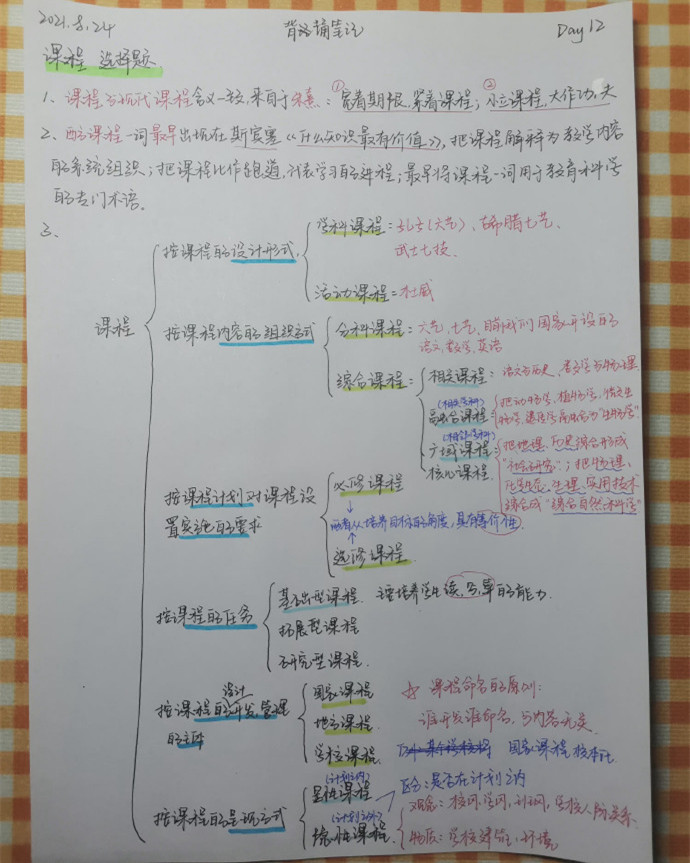 2021.8.24
背诵笔记
Day 12
课程 选择题
1、课程与现代课程含义一致,来自于朱熹:①宽着期限,紧着课程;②小立课程,大作功夫
2、西方课程一词最早出现在斯宾塞《什么知识最有价值》,把课程解释为教学内容
的系统组织;把课程比作跑道,代表学习的进程;最早将课程一词用于教育科学
的专门术语。
3、
课程
按课程的设计形式
学科课程:孔子(六艺)、古希腊七艺、
武士七技、
活动课程:杜威
按课程内容的组织方式
分科课程:六艺、七艺、目前我们国家开设的
语文、数学、英语
综合课程=
相关课程:语文与历史、数学与物理
(相近学科)
融合课程=把动物学、植物学、
融合为"生物学"
广域课程
把地理、历史综合形成
"社会研究";把物理、
化学、生理、实用技术
综合成"综合自然科学"
核心课程
按课程计划对课程设
置实施的要求
必修课程
两者从培养目标的角度,具有等价性
选修课程
按课程的任务
基础型课程 主要培养学生读、写、算的能力
拓展型课程
研究型课程
按课程的设计开发、管理
的主体
国家课程
地方课程
学校课程
课程命名的原则:
谁开发谁命名,与内容无关
国家课程校本化
按课程的呈现方式
(计划之内)
显性课程
区分:是否在计划之内
(计划之外)
隐性课程
观念:校风、学风、学校人际关系
物质:学校建筑、